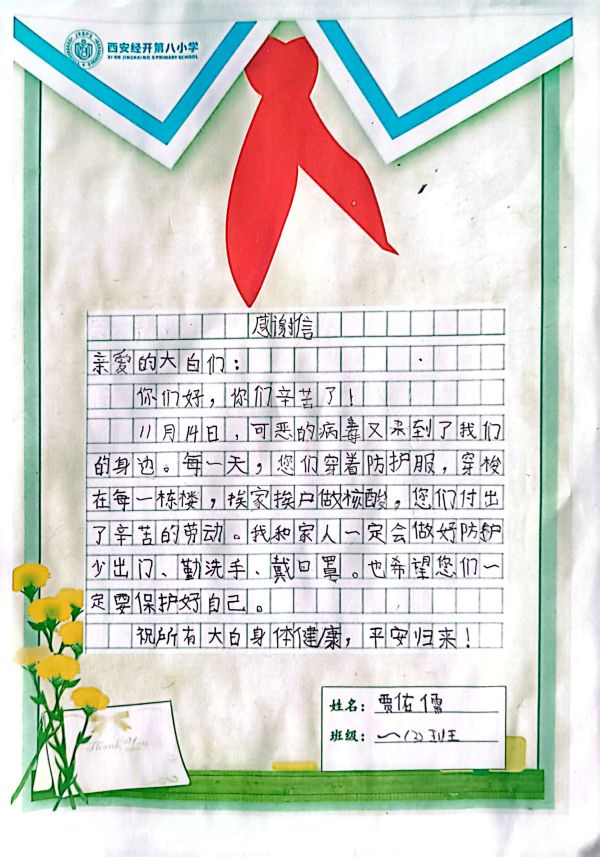 西安经开第八小学
XI'AN JINGKAI NO.8 PRIMARY SCHOOL
感谢信
亲爱的大白们：
你们好，你们辛苦了！
11月14日，可恶的病毒又来到了我们
的身边。每一天，您们穿着防护服，穿梭
在每一栋楼，挨家挨户做核酸，您们付出
了辛苦的劳动。我和家人一定会做好防护
少出门、勤洗手、戴口罩。也希望您们一
定要保护好自己。
祝所有大白身体健康，平安归来！
Thank You
姓名：贾佑儒
班级：一(3)班